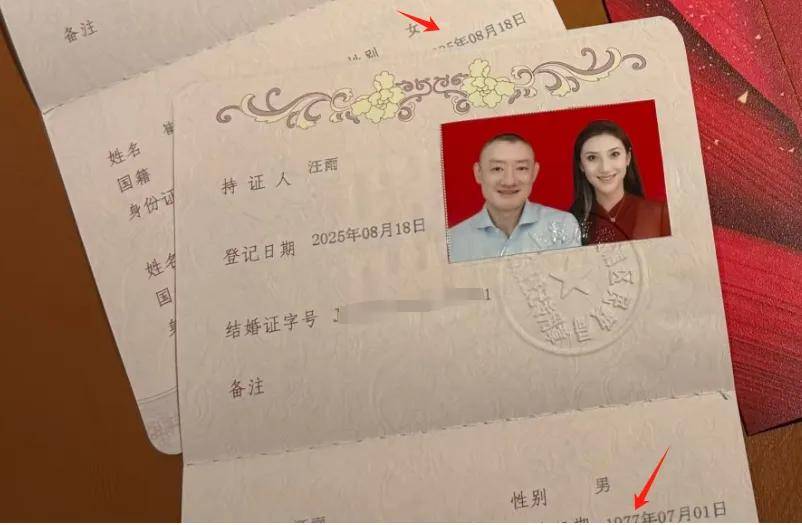 备注
女
性别
25年08月18日
姓名
国籍
身份证
姓名
国
持证人 汪雨
登记日期 2025年08月18日
结婚证字号 J 1
备注
性别 男
汪雨
期 1977年07月01日